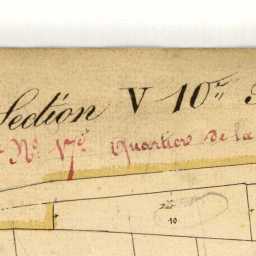 Section V 10er
No 17e Quartier de la
10